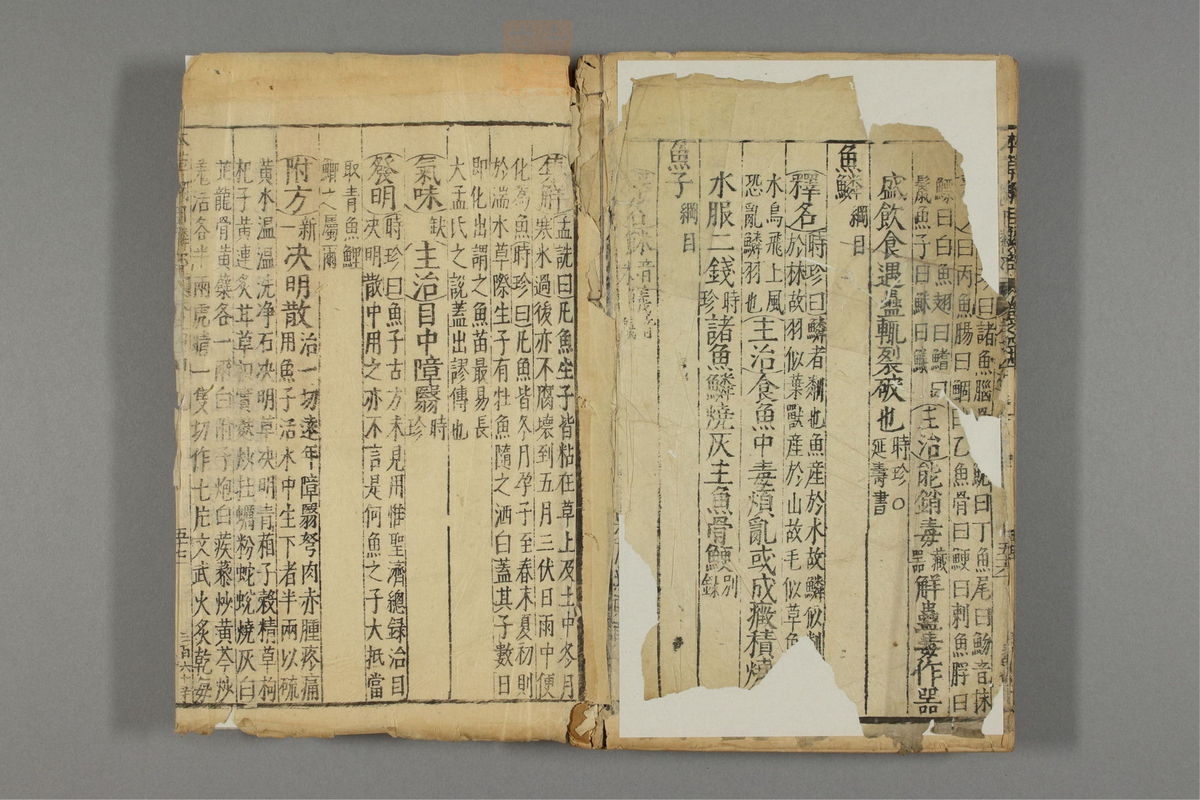 曰諸魚腦 魫曰丁魚尾曰魶音抹
曰丙魚腸曰鮦曰乙魚骨曰鯁曰刺魚脬曰
鰾曰白魚翅曰鰭曰
鬣魚子曰鮇曰鱦 主治能銷毒藏器解蠱毒作器
盛飲食遇蠱輒裂破也時珍○延壽書
魚鱗綱目
釋名時珍曰鱗者粼也魚產於水故鱗似粼
於林故羽似葉獸產於山故毛似草魚
水鳥飛上風
恐亂鱗羽也主治食魚中毒煩亂或成癥積燒
水服二錢時珍諸魚鱗燒灰主魚骨鯁別錄
魚子綱目
集解孟詵曰凡魚生子皆粘在草上及土中冬月
寒水過後亦不腐壞到五月三伏日雨中便
化爲魚時珍曰凡魚皆冬月孕子至春末夏初則
於湍水草際生子有牡魚隨之洒白蓋其子數日
即化出謂之魚苗最易長
大孟氏之說蓋出謬傳也
氣味缺主治目中障翳時珍
發明時珍曰魚子古方未見用惟聖濟總録治目
決明散中用之亦不言是何魚之子大抵當
取青魚鯉
鯽之屬爾
附方新一決明散治一切遠年障翳努肉赤腫疼痛
用魚子活水中生下者半兩以硫
黃水温温洗净石决明草决明青葙子穀精草枸
杞子黃連炙甘草枳實麩炒牡蠣粉蛇蛻燒灰白
芷龍骨黃蘗各一兩白附子炮白蒺藜炒黃芩炒
羌活各半兩虎睛一隻切作七片文武火炙乾每